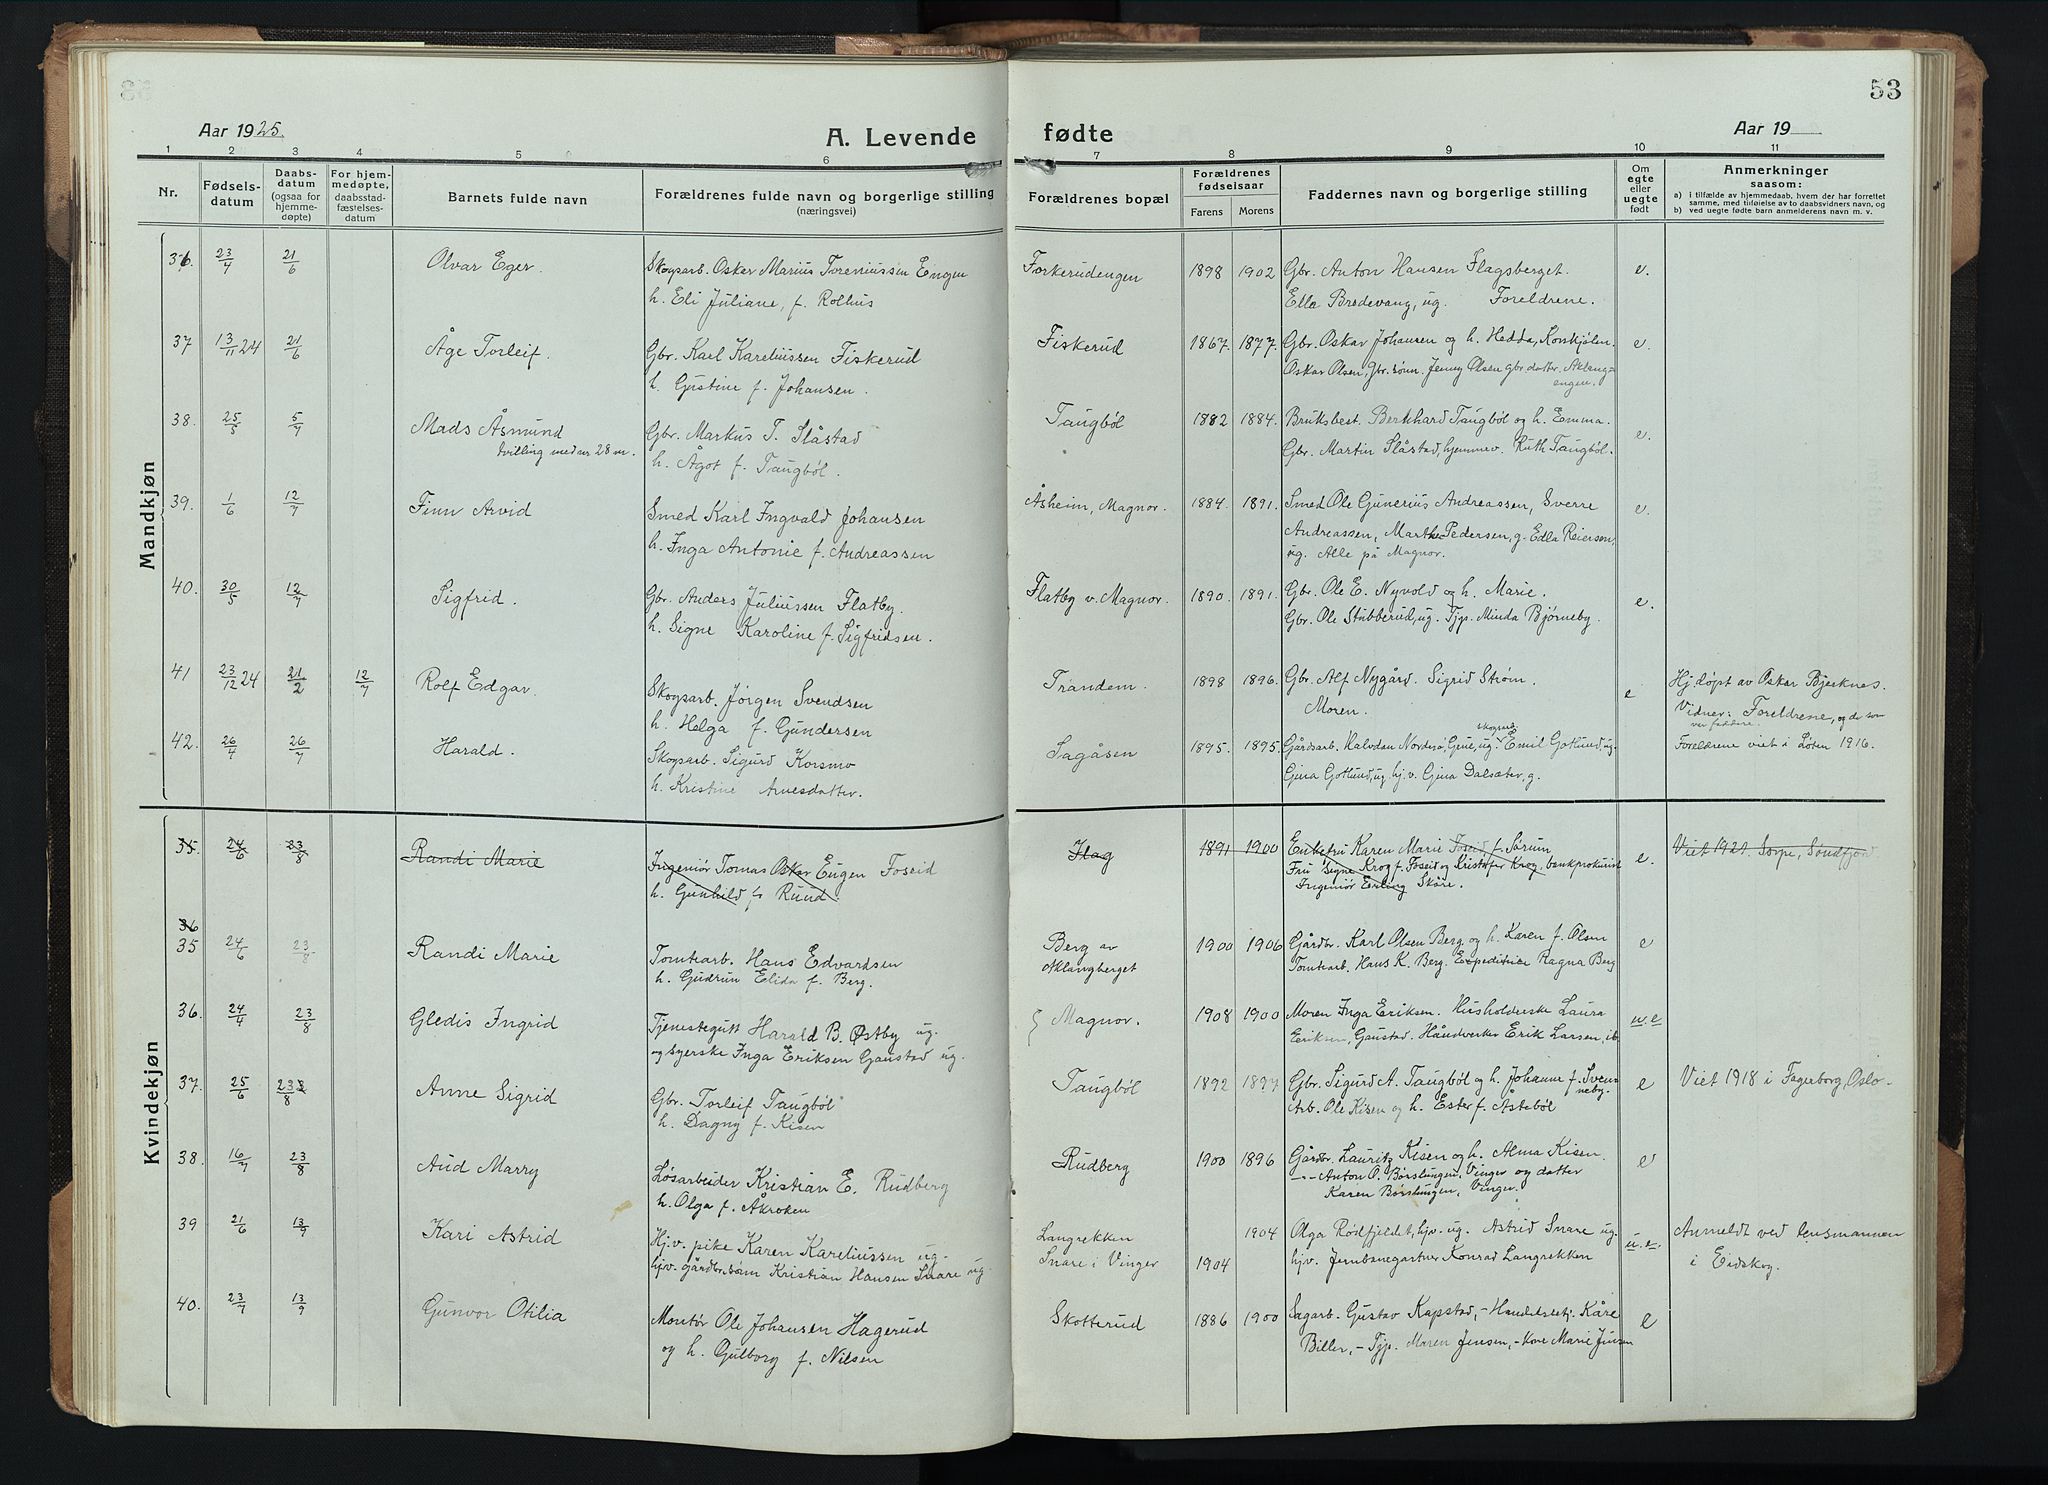 53
Aar 1925.
A. Levende fødte
Aar 19
1 2 3 4 5 6 7 8 9 10 11
Nr.
Fødselsdatum
Daabsdatum (ogsaa for hjemmedøpte)
For hjemmedøpte, daabsstadfæstelsesdatum
Barnets fulde navn
Forældrenes fulde navn og borgerlige stilling (næringsvei)
Forældrenes bopæl
Forældrenes fødselsaar
Farens Morens
Faddernes navn og borgerlige stilling
Om egte eller uegte født
Anmerkninger saasom:
a) i tilfælde av hjemmedaab, hvem der har forrettet samme, med tilføielse av to daabsvidners navn, og
b) ved uegte fødte barn anmelderens navn m. v.
Mandkjøn
36 23/4 21/6 Olvar Eger. Skogsarb. Oskar Marius Toreniussen Engen Forkerudengen 1898 1902 Gbr. Anton Hansen Flagsberget. e.
h. Eli Juliane, f. Rolhus Ella Bredevang, ug. Foreldrene.
37 13/11 24 21/6 Åge Torleif. Gbr. Karl Kareliussen Fiskerud Fiskerud 1867. 1877. Gbr. Oskar Johansen og h. Hedda, Korskjølen. e.
h. Gustine f. Johansen. Oskar Olsen, Gbr. sønn. Jenny Olsen gbr. datter. Aklangengen.
38. 25/5 5/7 Mads Åsmund Gbr. Markus T. Slåstad Taugbøl 1882 1884. Bruksbest. Bernhard Taugbøl og h. Emma. e.
tvilling med nr 28 m. h. Ågot f. Taugbøl. Gbr. Martin Slåstad, hjemmev. Ruth Taugbøl.
39. 1/6 12/7 Finn Arvid Smed Karl Ingvald Johansen Åsheim, Magnor. 1884. 1891. Smed Ole Gunerius Andreassen, Sverre e.
h. Inga Antonie f. Andreassen Andreassen, Marthe Pedersen, g. Edla Reierson,
ug. Alle på Magnor.
40. 30/5 12/7 Sigfrid. Gbr. Anders Juliussen Flatby. Flatby v. Magnor. 1890. 1891. Gbr. Ole E. Nyvold og h. Marie. e.
h. Signe Karoline f. Sigfridsen. Gbr. Ole Stubberud, ug. Tjp. Minda Bjørneby.
41 23/12 24 21/2 12/7 Rolf Edgar. Skogsarb. Jørgen Svendsen Trandem. 1898 1896. Gbr. Alf Nygård. Sigrid Strøm. e Hj. døpt av Oskar Bjerknes.
h. Helga f. Gundersen Moren. Vidner: Foreldrene, og de som
var faddere.
42. 26/4 26/7 Harald. Skogsarb. Sigurd Korsmo Sagåsen 1895. 1895. Gårdsarb. Halvdan Nordnsø, Grue, ug. Emil Gotlund, ug. Foreldrene viet i Løten 1916.
h. Kristine Arnesdatter. Gina Gotlund, ug. hj. v. Gina Dalsæter, g.
Kvindekjøn
35. 24/6 23/8 Randi Marie Ingeniør Tomas Oskar Eugen Foseid Flag 1891 1900 Enkefru Karen Marie Foseid f. Sørum e. Viet 1921. Sørpe, Sundfjord
h. Gunhild f. Ruud. Fru Signe Krog f. Foseid og Kristofer Krog, bankprokurist
Ingeniør Erling Skåre.
36
35 24/6 23/8 Randi Marie Tomtearb. Hans Edvardsen Berg av 1900 1906 Gårdbr. Karl Olsen Berg og h. Karen f. Olsen e
h. Gudrun Elida f. Berg. Aklangberget Tomtearb. Hans K. Berg. Expeditrice Ragna Berg
36. 24/4 23/8 Gledis Ingrid Tjenestegutt Harald B. Østby ug. Magnor. 1908 1900 Moren Inga Eriksen. Husholderske Laura u. e
og syerske Inga Eriksen Gaustad ug. Eriksen, Gaustad. Håndverker Erik Larsen, ib.
37. 25/6 23/8 Anne Sigrid Gbr. Torleif Taugbøl Taugbøl 1892 1897 Gbr. Sigurd A. Taugbøl og h. Johanne f. Svenneby. e Viet 1918 i Fagerborg, Oslo.
h. Dagny f. Kisen Arb. Ole Kisen og h. Ester f. Åstebøl
38. 16/7 23/8 Aud Marry Løsarbeider Kristian E. Rudberg Rudberg 1900 1896 Gårdbr. Lauritz Kisen og h. Alma Kisen. e
h. Olga f. Åkroken -"- Anton O. Børslungen, Vinger og datter
Karen Børslungen, Vinger.
39 21/6 13/9 Kari Astrid Hj. v. pike Karen Kareliussen ug. Langrekken 1904 Olga Rødfjeldet, hjv. ug. Astrid Snare ug. u. e. Anmeldt ved lensmannen
hjv. gårdbr. sønn Kristian Hansen Snare ug. Snare i Vinger 1904 hjv. Jernbanegartner Konrad Langrekken i Eidskog.
40. 23/7 13/9 Gunvor Otilia Montør Ole Johansen Hagerud Skotterud 1886 1900 Sagarb. Gustav Kapstad, - Handelsbetj. Kåre e
og h. Gulborg f. Nilsen Biller, - Tjp. Maren Jensen, - Kone Marie Jensen